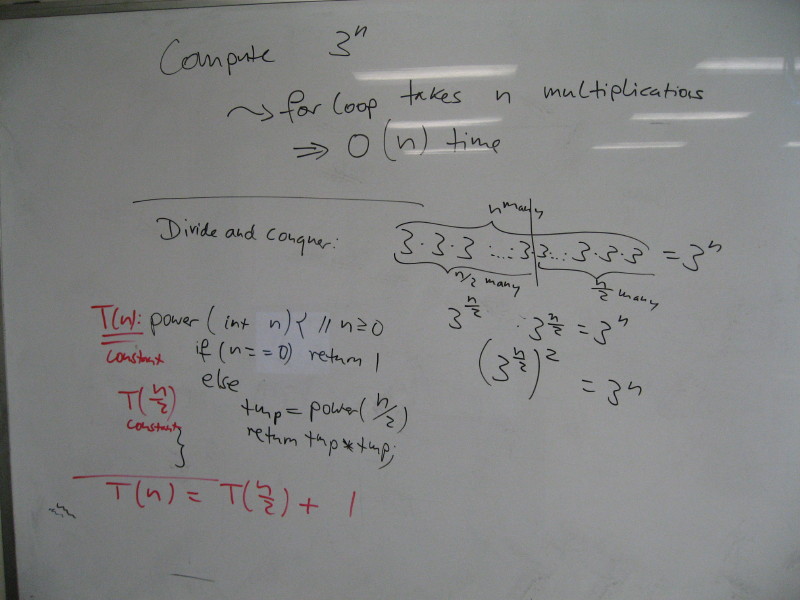 Compute 3^n
~> for loop takes n multiplications
=> O(n) time
Divide and conquer:
n many
3·3·3 ...·3·3...·3·3·3 = 3^n
n/2 many n/2 many
3^(n/2) · 3^(n/2) = 3^n
(3^(n/2))^2 = 3^n
T(n): power (int n) { // n≥0
constant if (n==0) return 1
else
T(n/2) tmp = power(n/2)
constant return tmp*tmp;
}
T(n) = T(n/2) + 1